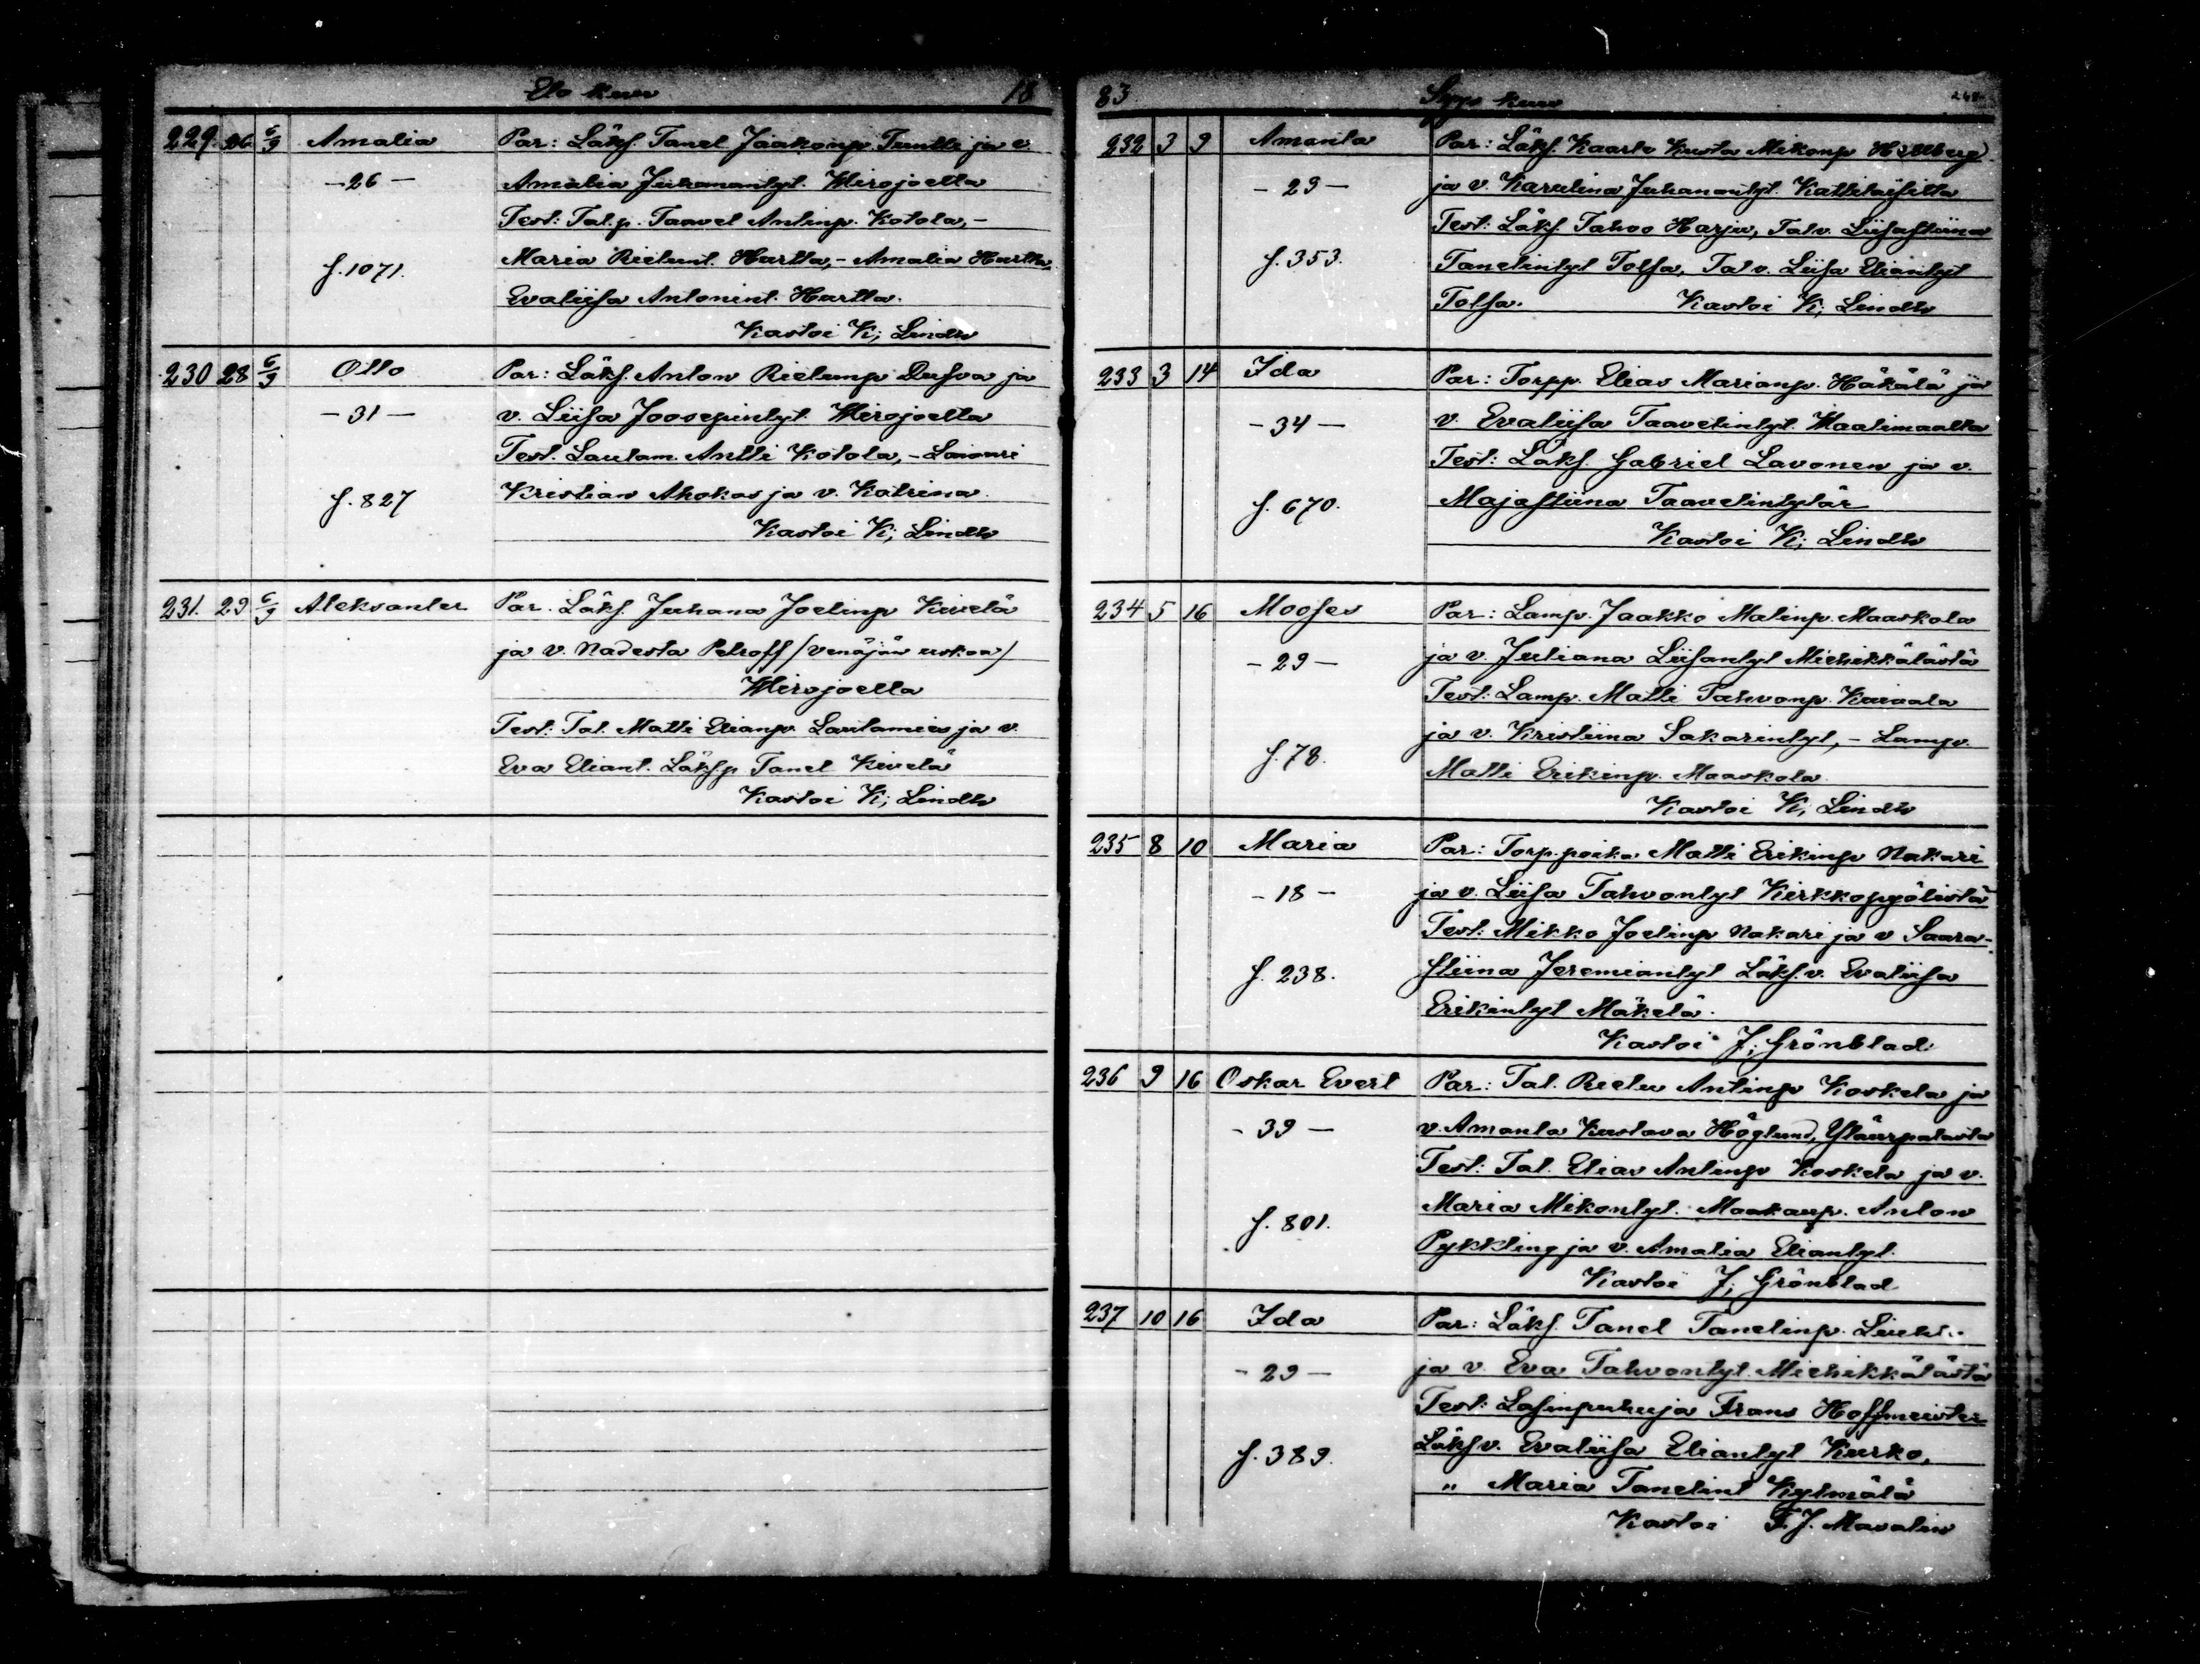 Elo kuu 18
229. 26. 6/9 Amalia Par: Läks. Tanel Jaakonp. Tuntti ja v.
- 26 - Amalia Juhanantyt. Wirojoelta
Test: Tal.p. Taavet Antinp. Kotola, -
f. 1071. Maria Rietunt. Hurtta, - Amalia Hurtta,
Evaliisa Antonint. Hurtta.
Kastoi K; Lindh
230 28 6/9 Otto Par: Läks. Anton Rietunp Dusva ja
- 31 - v. Liisa Joosepintyt. Wirojoelta
Test. Lautam. Antti Kotola, -
f. 827 Kristian Ahokas ja v. Katrina.
Kastoi K; Lindh
231. 29 6/9 Aleksanter Par. Läks. Juhana Joelinp Kivelä
ja v. Nadesta Petroff (venäjän uskoa)
Wirojoelta
Test: Tal. Matti Elianp. Lautamies ja v.
Eva Eliant. Läksp Tanel Kivelä
Kastoi K; Lindh
83 Syys kuu
232 3 9 Amanta Par: Läks. Kaarlo Kusta Mikonp Hellberg
- 29 - ja v. Karulina Juhanantyt.
Test: Läks. Tahvo Harju, Talv. Liisastiina
f. 353. Tanelintyt Tolsa, Talv. Liisa Eliantyt
Tolsa. Kastoi K; Lindh
233 3 14 Ida Par: Torpp. Elias Marianp. Häkälä ja
- 34 - v. Evaliisa Taavetintyt. Waalimaalta
Test: Läks. Gabriel Lavonen ja v.
f. 670. Majastiina Taavetintytär
Kastoi K; Lindh
234 5 16 Mooses Par: Lamp. Jaakko Matinp. Maaskola
- 29 - ja v. Juliana Liisantyt Miehikkälästä
Test: Lamp. Matti Tahvonp. Kuivala
ja v. Kristiina Sakarintyt, - Lamp.
f. 78. Matti Erikinp. Maaskola.
Kastoi K; Lindh
235 8 10 Maria Par: Torp. poika Matti Erikinp Nakari
- 18 - ja v. Liisa Tahvontyt Kirkkopyölistä
Test: Mikko Joelinp Nakari ja v Saara-
f. 238. stiina Jeremiantyt Läks. v. Evaliisa
Erikintyt Mäkelä.
Kastoi J; Grönblad.
236 9 16 Oskar Evert Par: Tal. Rietu Antinp Koskela ja
- 39 - v. Amanta Kustava Höglund, Yläurpalasta
Test: Tal. Elias Antinp Koskela ja v.
f. 801. Maria Mikontyt. Maakaup. Anton
Pykkling ja v. Amalia Eliantyt.
Kastoi J; Grönblad
237 10 16 Ida Par: Läks. Tanel Tanelinp.
- 29 - ja v. Eva Tahvontyt. Miehikkälästä
Test: Lasinpuhuja Frans Hoffmeister
f. 389. Läks v. Evaliisa Eliantyt Kurko,
" Maria Tanelint Kylmälä
Kastoi F. J. Masalin